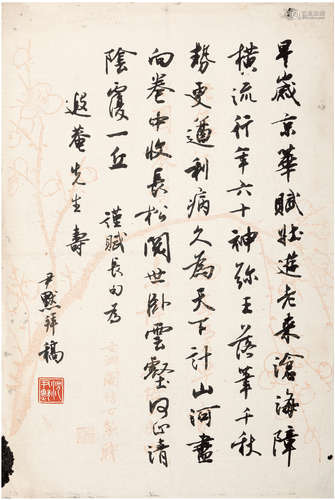 早岁京华赋壮遊老来滄海障
横流行年六十神弥王落筆千秋
勢更遒利病久為天下計山河盡
向卷中收長松閱世卧雲壑日正清
陰覆一丘 謹賦長句為
遐菴先生壽
尹默拜稿